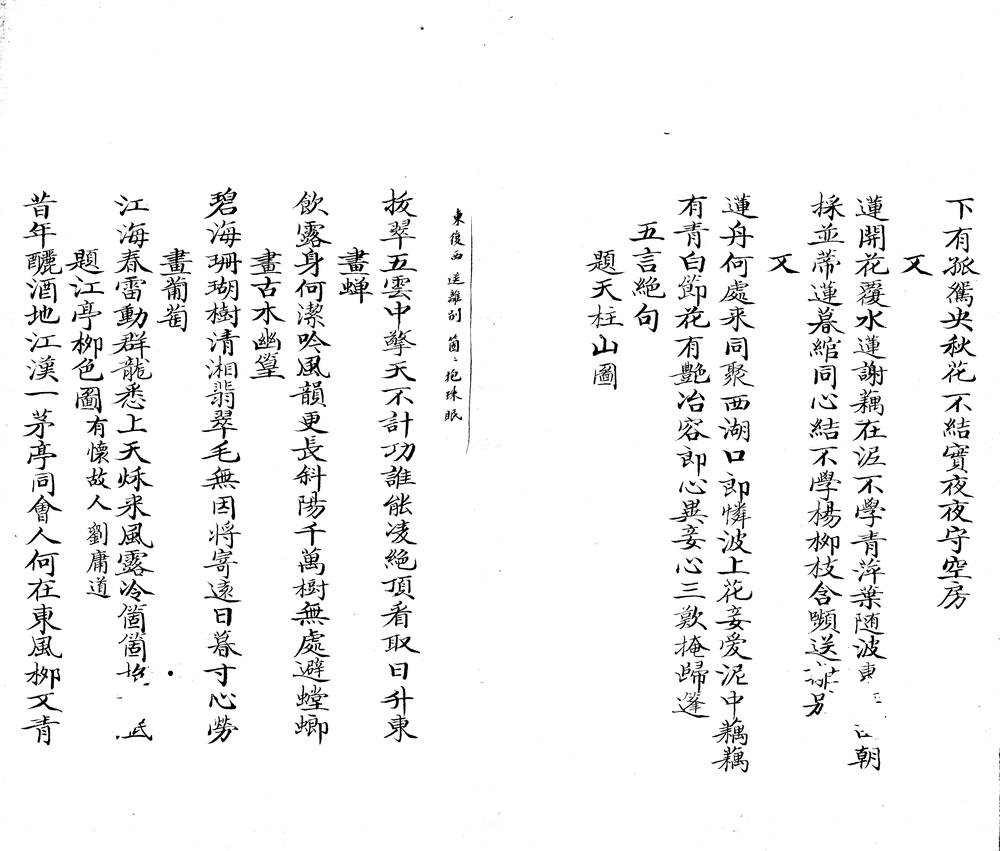 下有孤鴛央秋花不結實夜夜守空房
又
蓮開花覆水蓮謝藕在泥不學青萍葉随波東 朝
採並蒂蓮暮綰同心結不學楊柳枝含嚬送 别
又
蓮舟何處来同聚西湖口郎憐波上花妾愛泥中藕藕
有青白節花有艷冶容郎心異妾心三歎掩歸篷
五言絶句
題天柱山圖
東復西 送離别 箇〻抱珠眠
拔翠五雲中擎天不計功誰能凌絶頂看取日升東
畫蝉
飲露身何潔吟風韻更長斜陽千萬樹無處避螳螂
畫古木幽篁
碧海珊瑚樹清湘翡翠毛無因将寄遠日暮寸心勞
畫葡萄
江海春雷動群龍悉上天秌来風露冷箇箇抱 眠
題江亭柳色圖有懐故人劉庸道
昔年釃酒地江漢一茅亭同會人何在東風柳又青